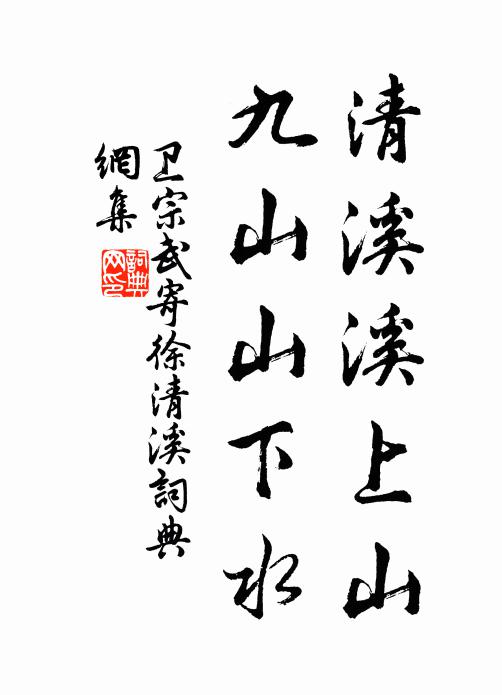 清溪溪上山
九山山下水
卫宗武寄徐清溪詞典
網集
詞典
网印